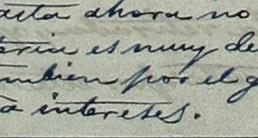 asta ahora no
teria es muy de
mbien por el g
a intereses.